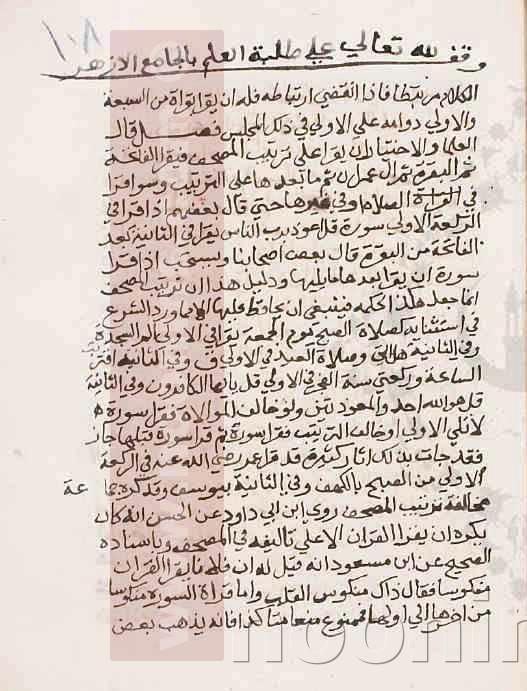 ١٠٨
وقف لله تعالى على طلبة العلم بالجامع الازهر
الكلام مرتبطا فاذا انقضي ارتباطه فله ان يقرا بقراة من السبعة
والاولي دوامه علي الاولي في ذلك المجلس فصل قال
العلما والاختيار ان يقرا على ترتيب المصحف فيقرا الفاتحة
ثم البقرة ثم ال عمران ثم ما بعدها على الترتيب وسوا قرا
في القراة الصلاه وفي غيرها حتي قال بعضهم اذا قرا في
الركعة الاولي سورة قل اعوذ برب الناس يقرا في الثانية بعد
الفاتحة من البقرة قال بعض اصحابنا ويستحب اذا قرا
سورة ان يقرا بعدها ما يليها ودليل هذا ان ترتيب المصحف
انما جعل هكذا لحكمه فينبغي ان يحافظ عليها الا ما ورد الشرع
في استثنايه كصلاة الصبح يوم الجمعة يقرا في الاولي الم السجدة
وفي الثانية هل اتي وصلاة العيد في الاولي ق وفي الثانية اقتربت
الساعة وركعتي سنة الفجر في الاولي قل يا ايها الكافرون وفي الثانية
قل هو الله احد والمعوذتين ولو خالف الموالاة فقرا سورة
لا تلي الاولي او خالف الترتيب فقرا سورة ثم قرا سورة قبلها جاز
فقد جات بذلك اثار كثيرة قد قرا عمر رضي الله عنه في الركعة
الاولي من الصبح بالكهف وفي الثانية بيوسف وقد كره جما عة
مخالفة ترتيب المصحف روي ابن ابي داود عن الحسن انه كان
يكره ان يقرا القران الا علي تاليفه في المصحف وباسناده
الصحيح عن ابن مسعود انه قيل له ان فلانا يقرا القران
منكوسا فقال ذاك منكوس القلب واما قراة السورة منكوسا
من اخرها الي اولها فممنوع منعا متاكدا فانه يذهب بعض